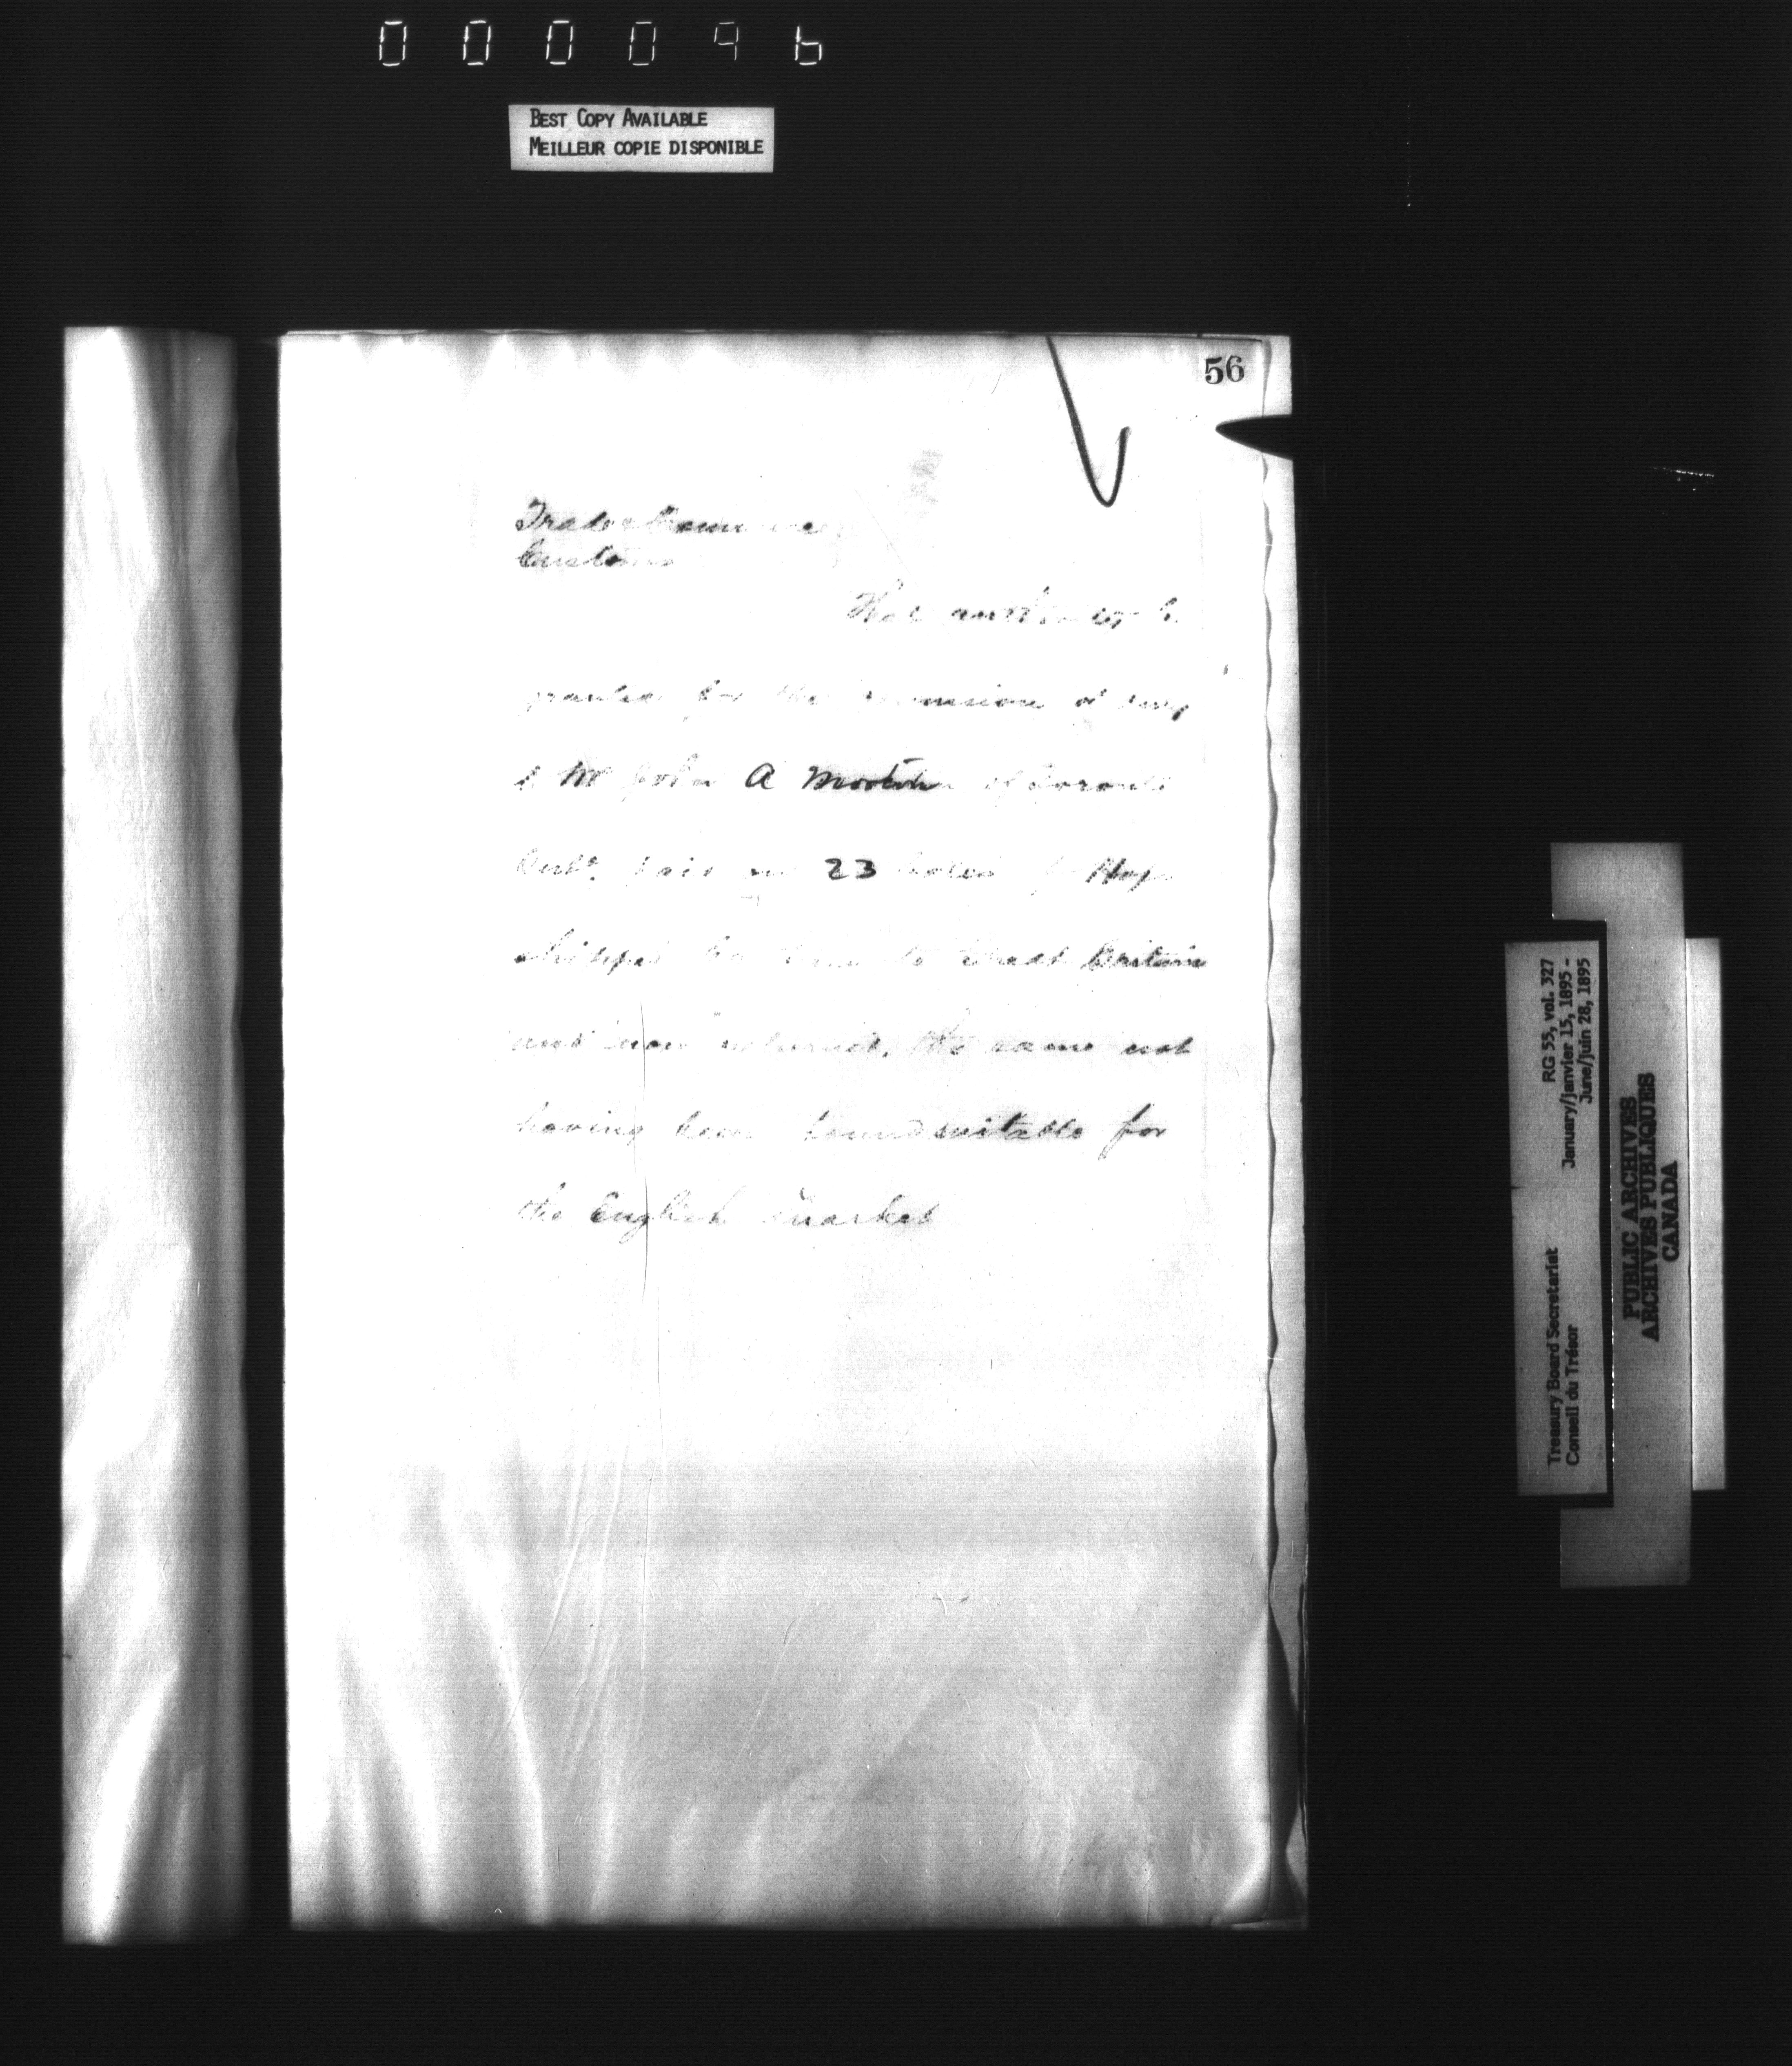 000096
BEST COPY AVAILABLE
MEILLEUR COPIE DISPONIBLE
56
Trade & Commerce
Customs
That authority be
granted for the remission of duty
to Mr John A of Toronto
Ont. paid on 23 bales of Hops
shipped by him to Great Britain
and now returned, the same not
having been found suitable for
the English market
Treasury Board Secretariat RG 55, vol. 327
Conseil du Trésor January/janvier 15, 1895 -
June/juin 28, 1895
PUBLIC ARCHIVES
ARCHIVES PUBLIQUES
CANADA